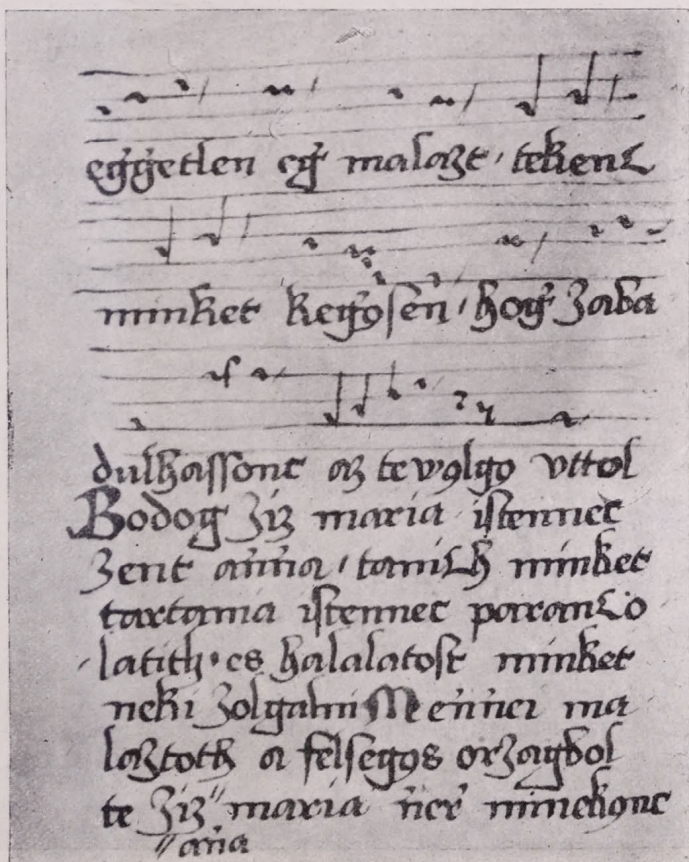 eġġetlen eġ malazt, tekencz
minket keġosen, hoġ zaba
dulhassonc az te vǫlgǫ vttol
Bodog ziz maria istennec
zent anña, tanich minket
tartania istennec paranczo
latith · es halalatost minket
neki zolgalni Mennei ma
laztoth a felsegǫs orzagbol
te ziz" maria ñer minekǫnc
"aña